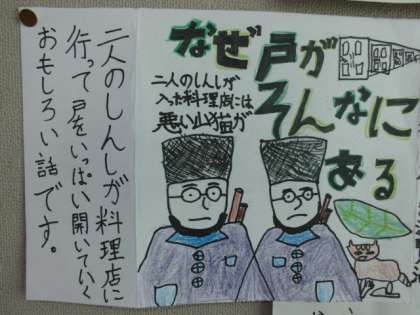 なぜ戸が
そんなに
ある
二人のしんしが
入った料理店には
悪い山猫が
二人のしんしが料理店に
行って戸をいっぱい開いていく
おもしろい話です。